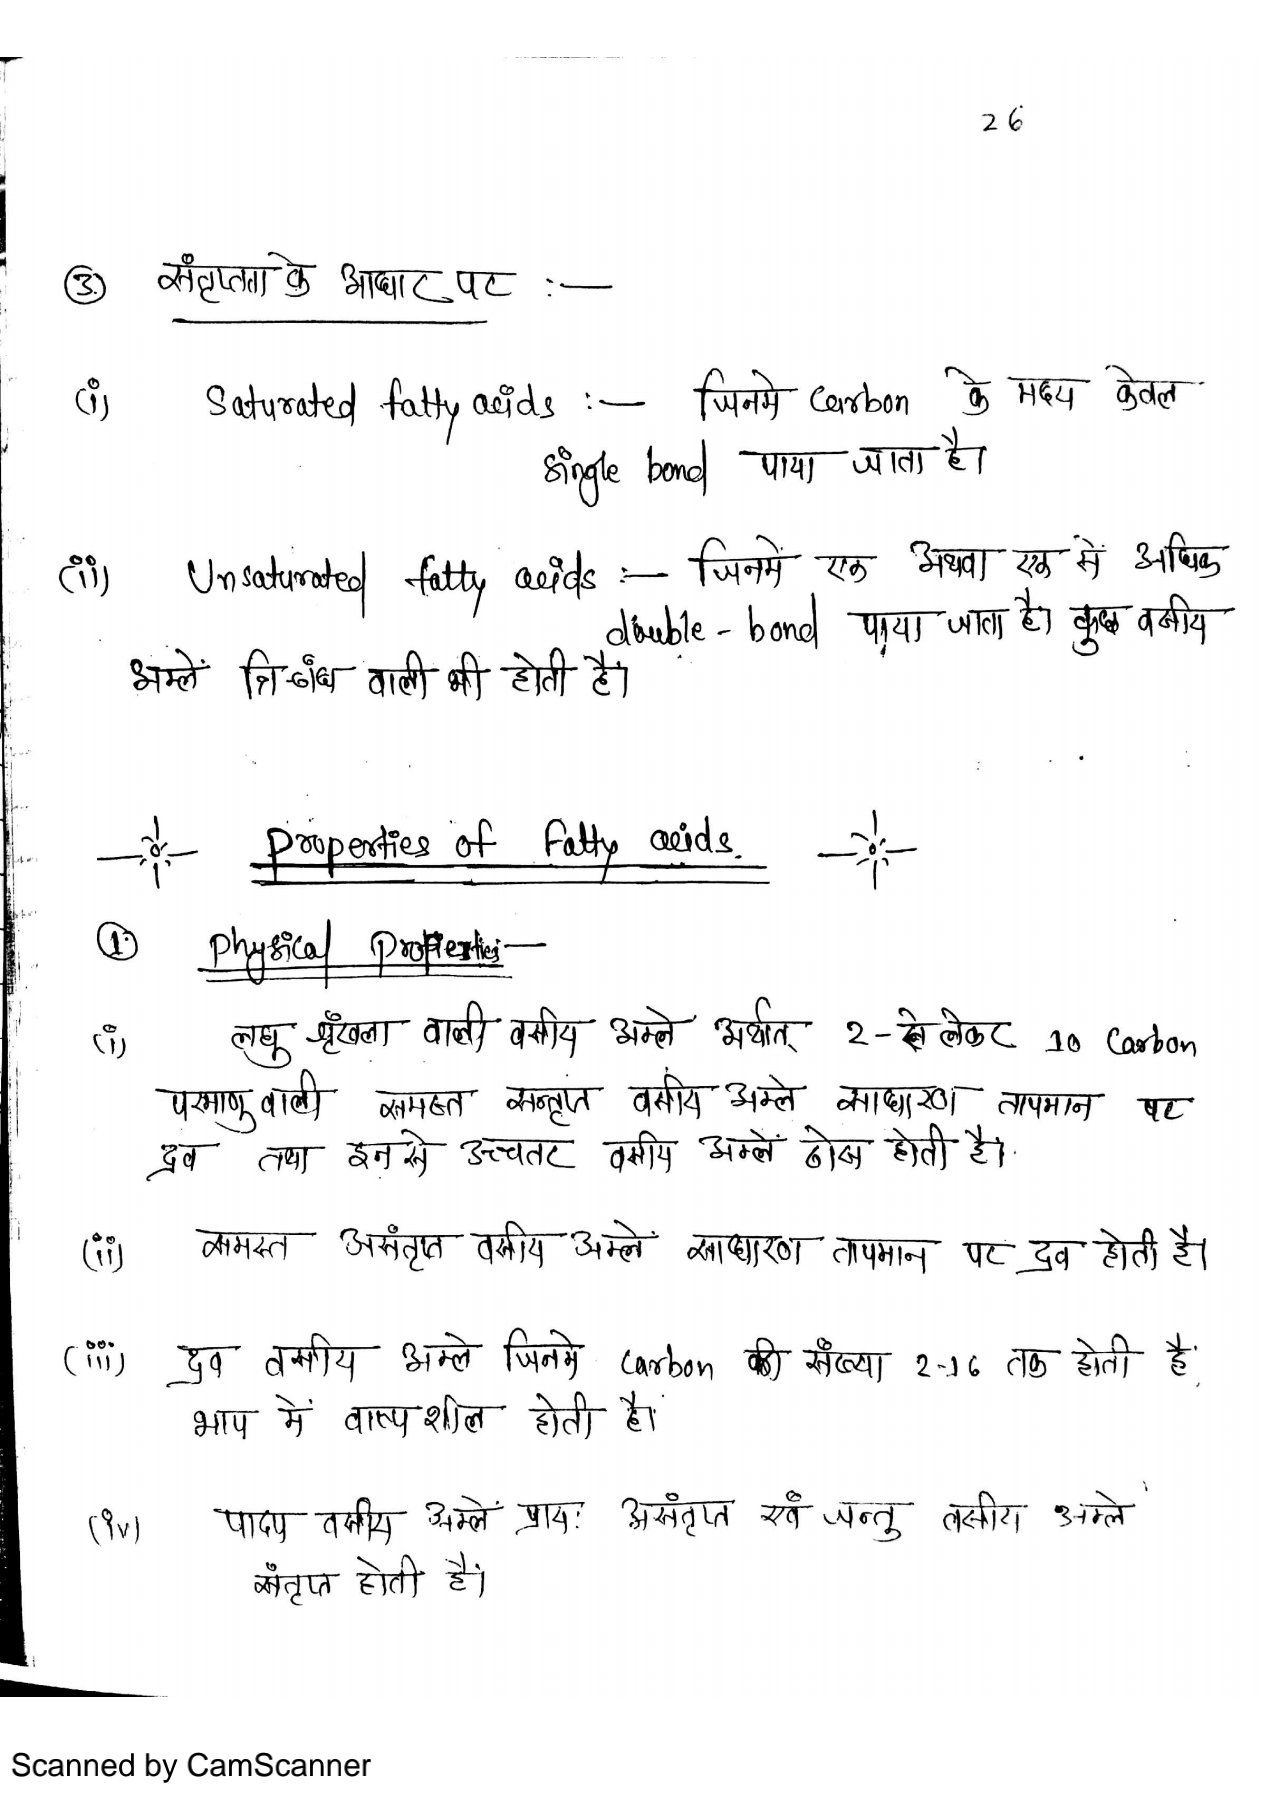 26
③ संतृप्तता के आधार पर :—
(i) Saturated fatty acids :— जिनमे Carbon के मध्य केवल
single bond पाया जाता है।
(ii) Unsaturated fatty acids :— जिनमें एक अथवा एक से अधिक
double-bond पाया जाता है। कुछ वसीय
अम्लें त्रि-बंध वाली भी होती हैं।
Properties of Fatty acids.
① Physical Properties:—
(i) लघु श्रृंखला वाली वसीय अम्ले अर्थात् 2-से लेकर 10 Carbon
परमाणु वाली समस्त सन्तृप्त वसीय अम्ले साधारण तापमान पर
द्रव तथा इनसे उच्चतर वसीय अम्लें ठोस होती है।
(ii) समस्त असंतृप्त वसीय अम्लें साधारण तापमान पर द्रव होती है।
(iii) द्रव वसीय अम्ले जिनमे Carbon की संख्या 2-16 तक होती है
भाप में वाष्पशील होती है।
(iv) पादप वसीय अम्लें प्रायः असंतृप्त एवं जन्तु वसीय अम्ले
संतृप्त होती हैं।
Scanned by CamScanner